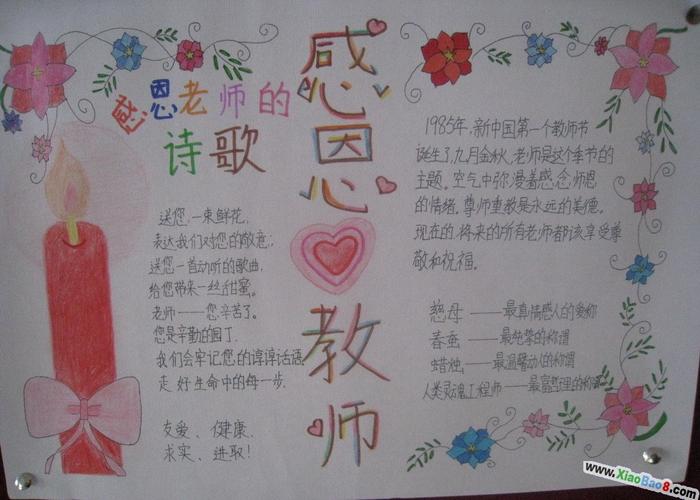 感恩教师
感恩老师的
诗歌
送您一束鲜花,
表达我们对您的敬意;
送您一首动听的歌曲,
给您带来一丝甜蜜。
老师——您辛苦了。
您是辛勤的园丁,
我们会牢记您的谆谆话语
走好生命中的每一步。
友爱、健康、
求实、进取!
1985年,新中国第一个教师节
诞生了,九月金秋,老师是这个季节的
主题。空气中弥漫着感念师恩
的情绪。尊师重教是永远的美德。
现在的,将来的所有老师都该享受尊
敬和祝福。
慈母——最真情感人的爱称
春蚕——最纯挚的称谓
蜡烛——最温馨动人的称谓
人类灵魂工程师——最富哲理的称谓
www.XiaoBao8.com